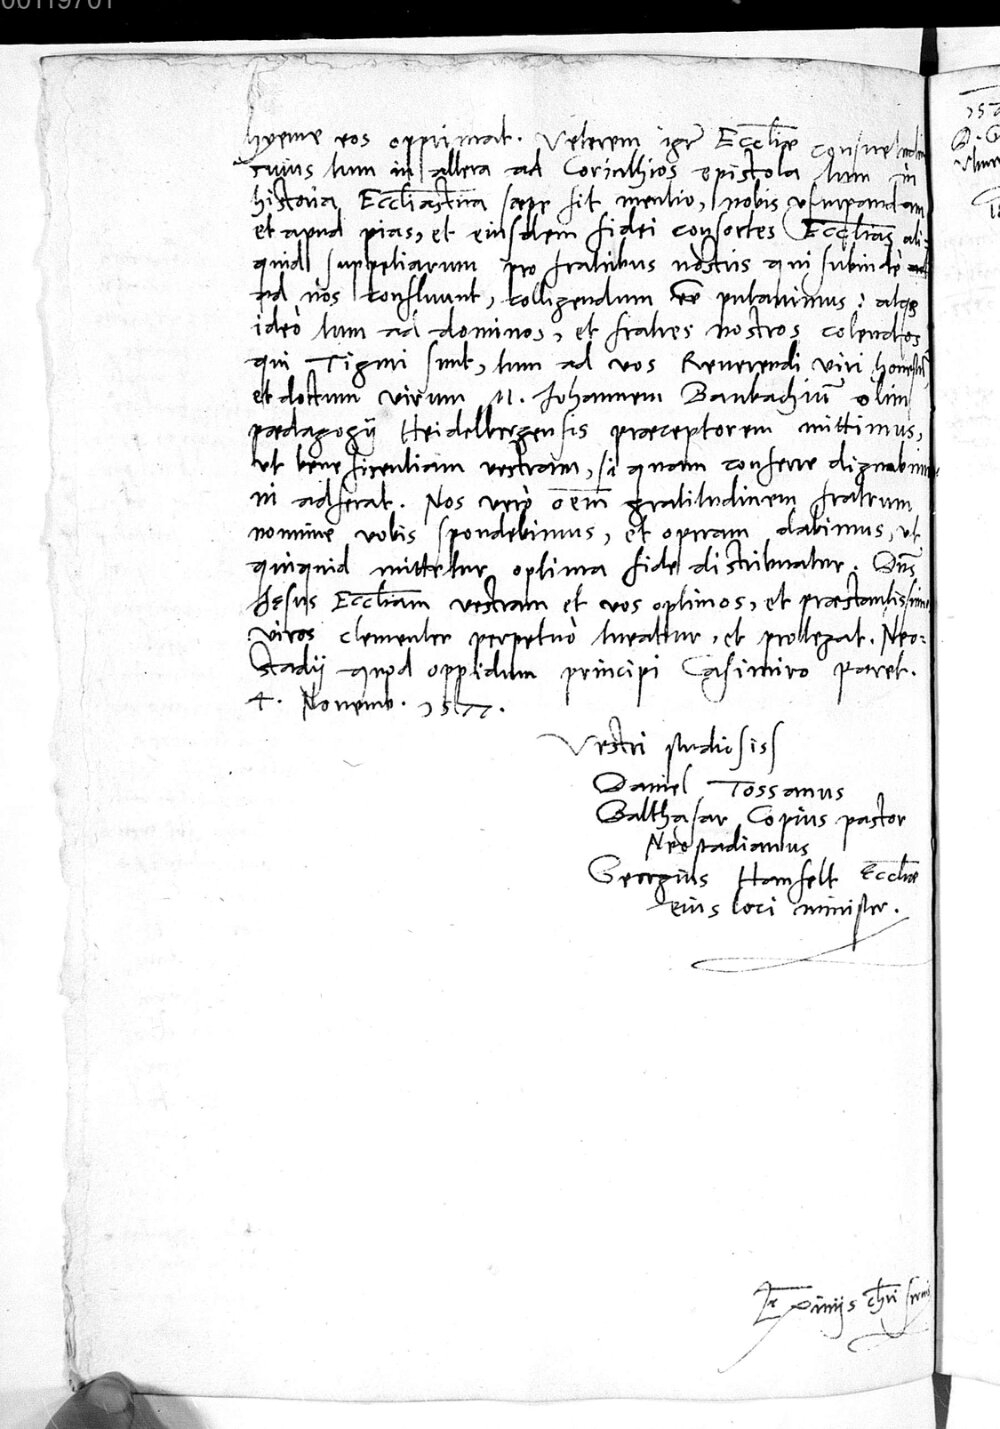 00119701
hyeme eos opprimat. Veterem igr̄ Eccl̄iæ consuetudin
cuius tum in altera ad Corinthios epistola tum in
historia Eccl̄iastica sæpe fit mentio, nobis usurpandam
et apud pias, et eiusdem fidei consortes Eccl̄ias ali-
quid suppetiarum pro fratribus nostris qui subinde
ad nos confluunt, colligendum ēē putauimus: atqȝ
ideò tum ad dominos, et fratres nostros colendos
qui Tiguri sunt, tum ad vos Reuerendi viri honestū,
et doctum virum M. Johannem Banbachiū olim
pædagogij Heidelbergensis præceptorem mittimus,
ut beneficentiam vestram, si quam conferre dignabim
ni adferat. Nos verò oēm gratitudinem fratrum
nomine vobis spondebimus, et operam dabimus, ut
quicquid mittetur optima fide distribuatur. Dn̄s
Jesus Eccl̄iam vestram et vos optimos, et præstantissimos
viros clementer perpetuò tueatur, et protegat. Neo-
stadij quod oppidum principi Casimiro paret.
4. Nouemb. 1577.
Vestri studiosiss
Daniel Tossanus
Balthasar Copius pastor
Neostadianus
Georgius Hanfelt Eccl̄iæ
eius loci minister.